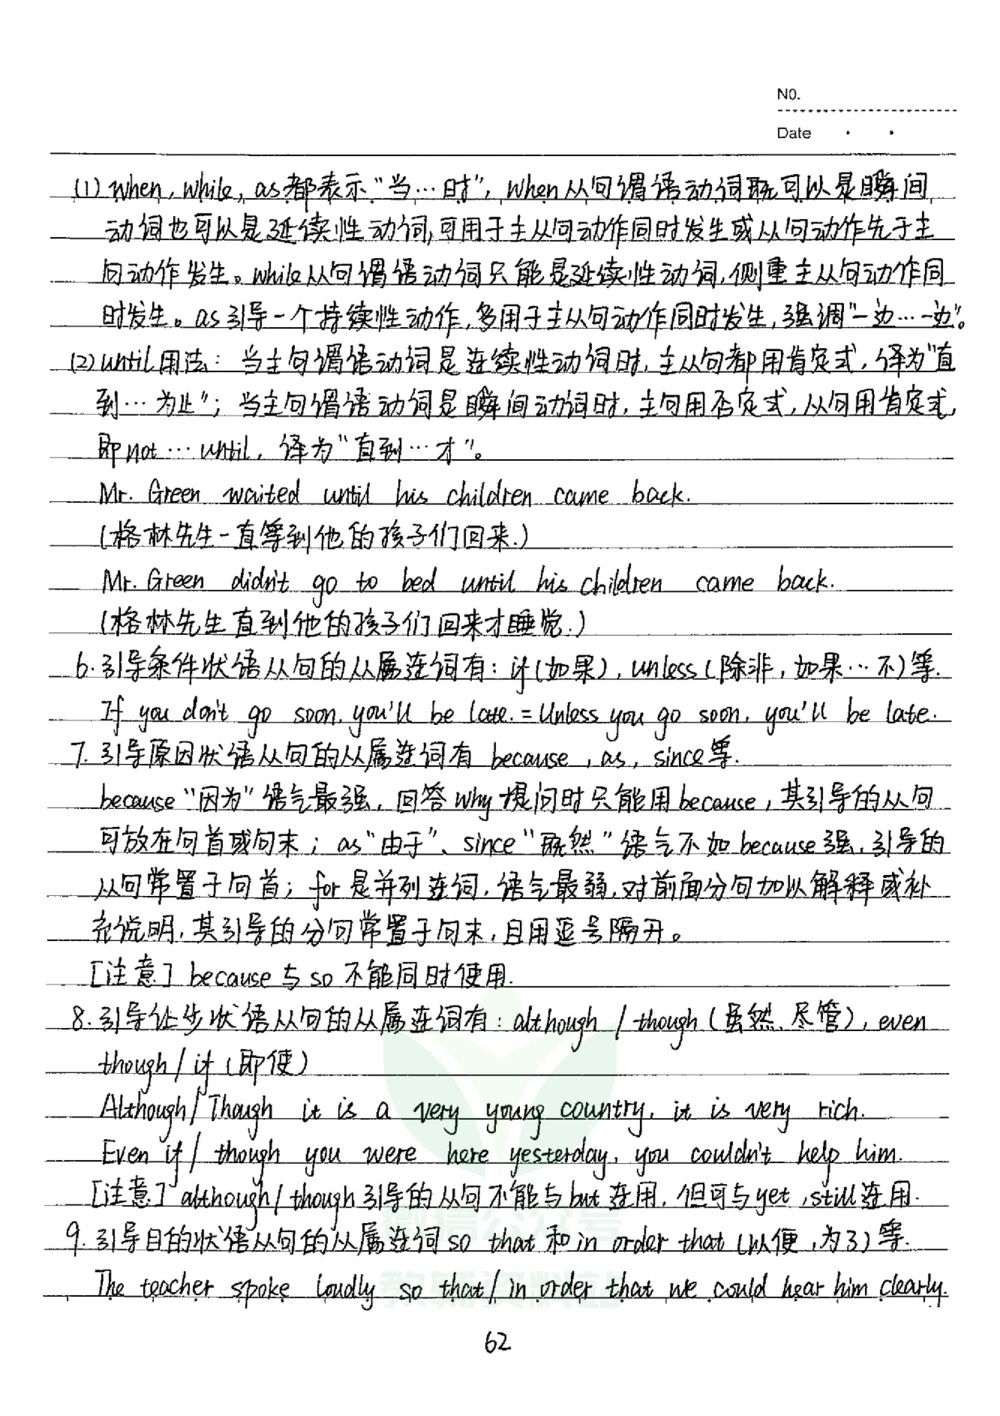 NO.
Date
(1) when, while, as都表示"当…时", when从句谓语动词既可以是瞬间
动词也可以是延续性动词,可用于主从句动作同时发生或从句动作先于主
句动作发生。while从句谓语动词只能是延续性动词,侧重主从句动作同
时发生。as引导一个持续性动作,多用于主从句动作同时发生,强调"一边…一边"。
(2) until用法: 当主句谓语动词是连续性动词时,主从句都用肯定式,译为"直
到…为止"; 当主句谓语动词是瞬间动词时,主句用否定式,从句用肯定式,
即not … until, 译为"直到…才"。
Mr. Green waited until his children came back.
(格林先生一直等到他的孩子们回来.)
Mr. Green didn't go to bed until his children came back.
(格林先生直到他的孩子们回来才睡觉.)
6.引导条件状语从句的从属连词有: if(如果), unless(除非,如果…不)等.
If you don't go soon, you'll be late. = Unless you go soon, you'll be late.
7.引导原因状语从句的从属连词有 because, as, since等.
because "因为"语气最强,回答why提问时只能用because,其引导的从句
可放在句首或句末; as"由于"、since "既然"语气不如because强,引导的
从句常置于句首; for是并列连词,语气最弱,对前面分句加以解释或补
充说明,其引导的分句常置于句末,且用逗号隔开。
[注意] because与so不能同时使用.
8.引导让步状语从句的从属连词有: although / though (虽然、尽管), even
though / if (即使)
Although/Though it is a very young country, it is very rich.
Even if/ though you were here yesterday, you couldn't help him.
[注意] although/though引导的从句不能与but连用,但可与yet, still连用.
9.引导目的状语从句的从属连词so that 和in order that (以便,为了)等.
The teacher spoke loudly so that/ in order that we could hear him clearly.
62
微信公众号
教辅资料站